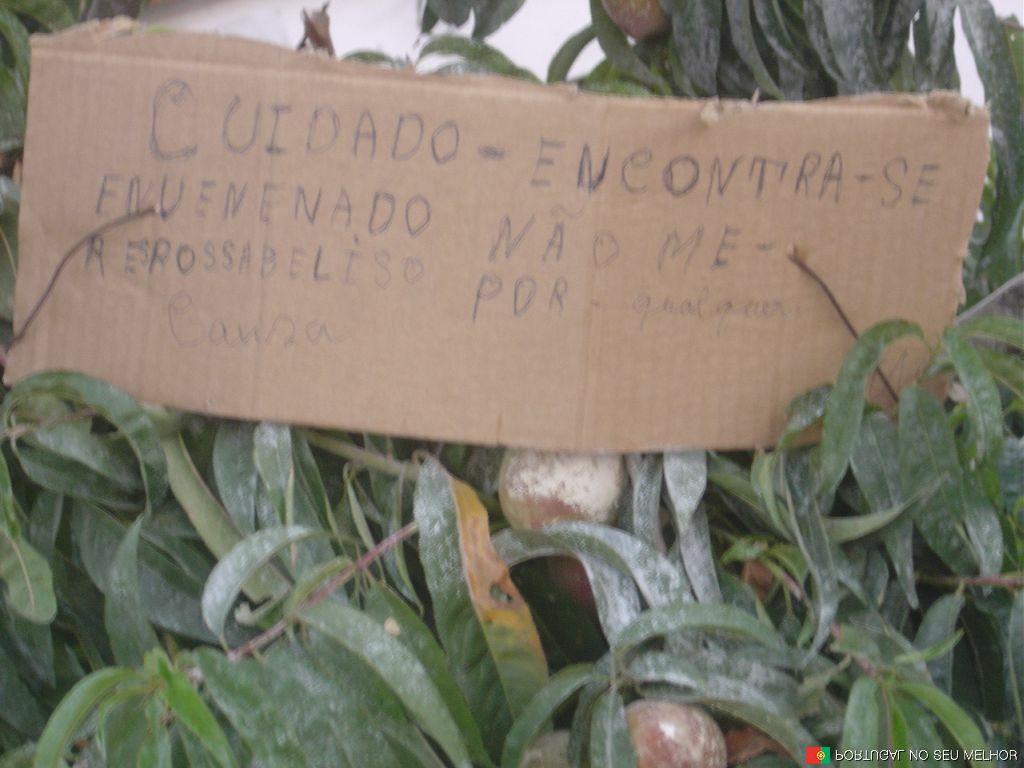 CUIDADO - ENCONTRA-SE
ENVENENADO NÃO ME-
RESPOSSABELISO POR - qualquer
Causa
PORTUGAL NO SEU MELHOR